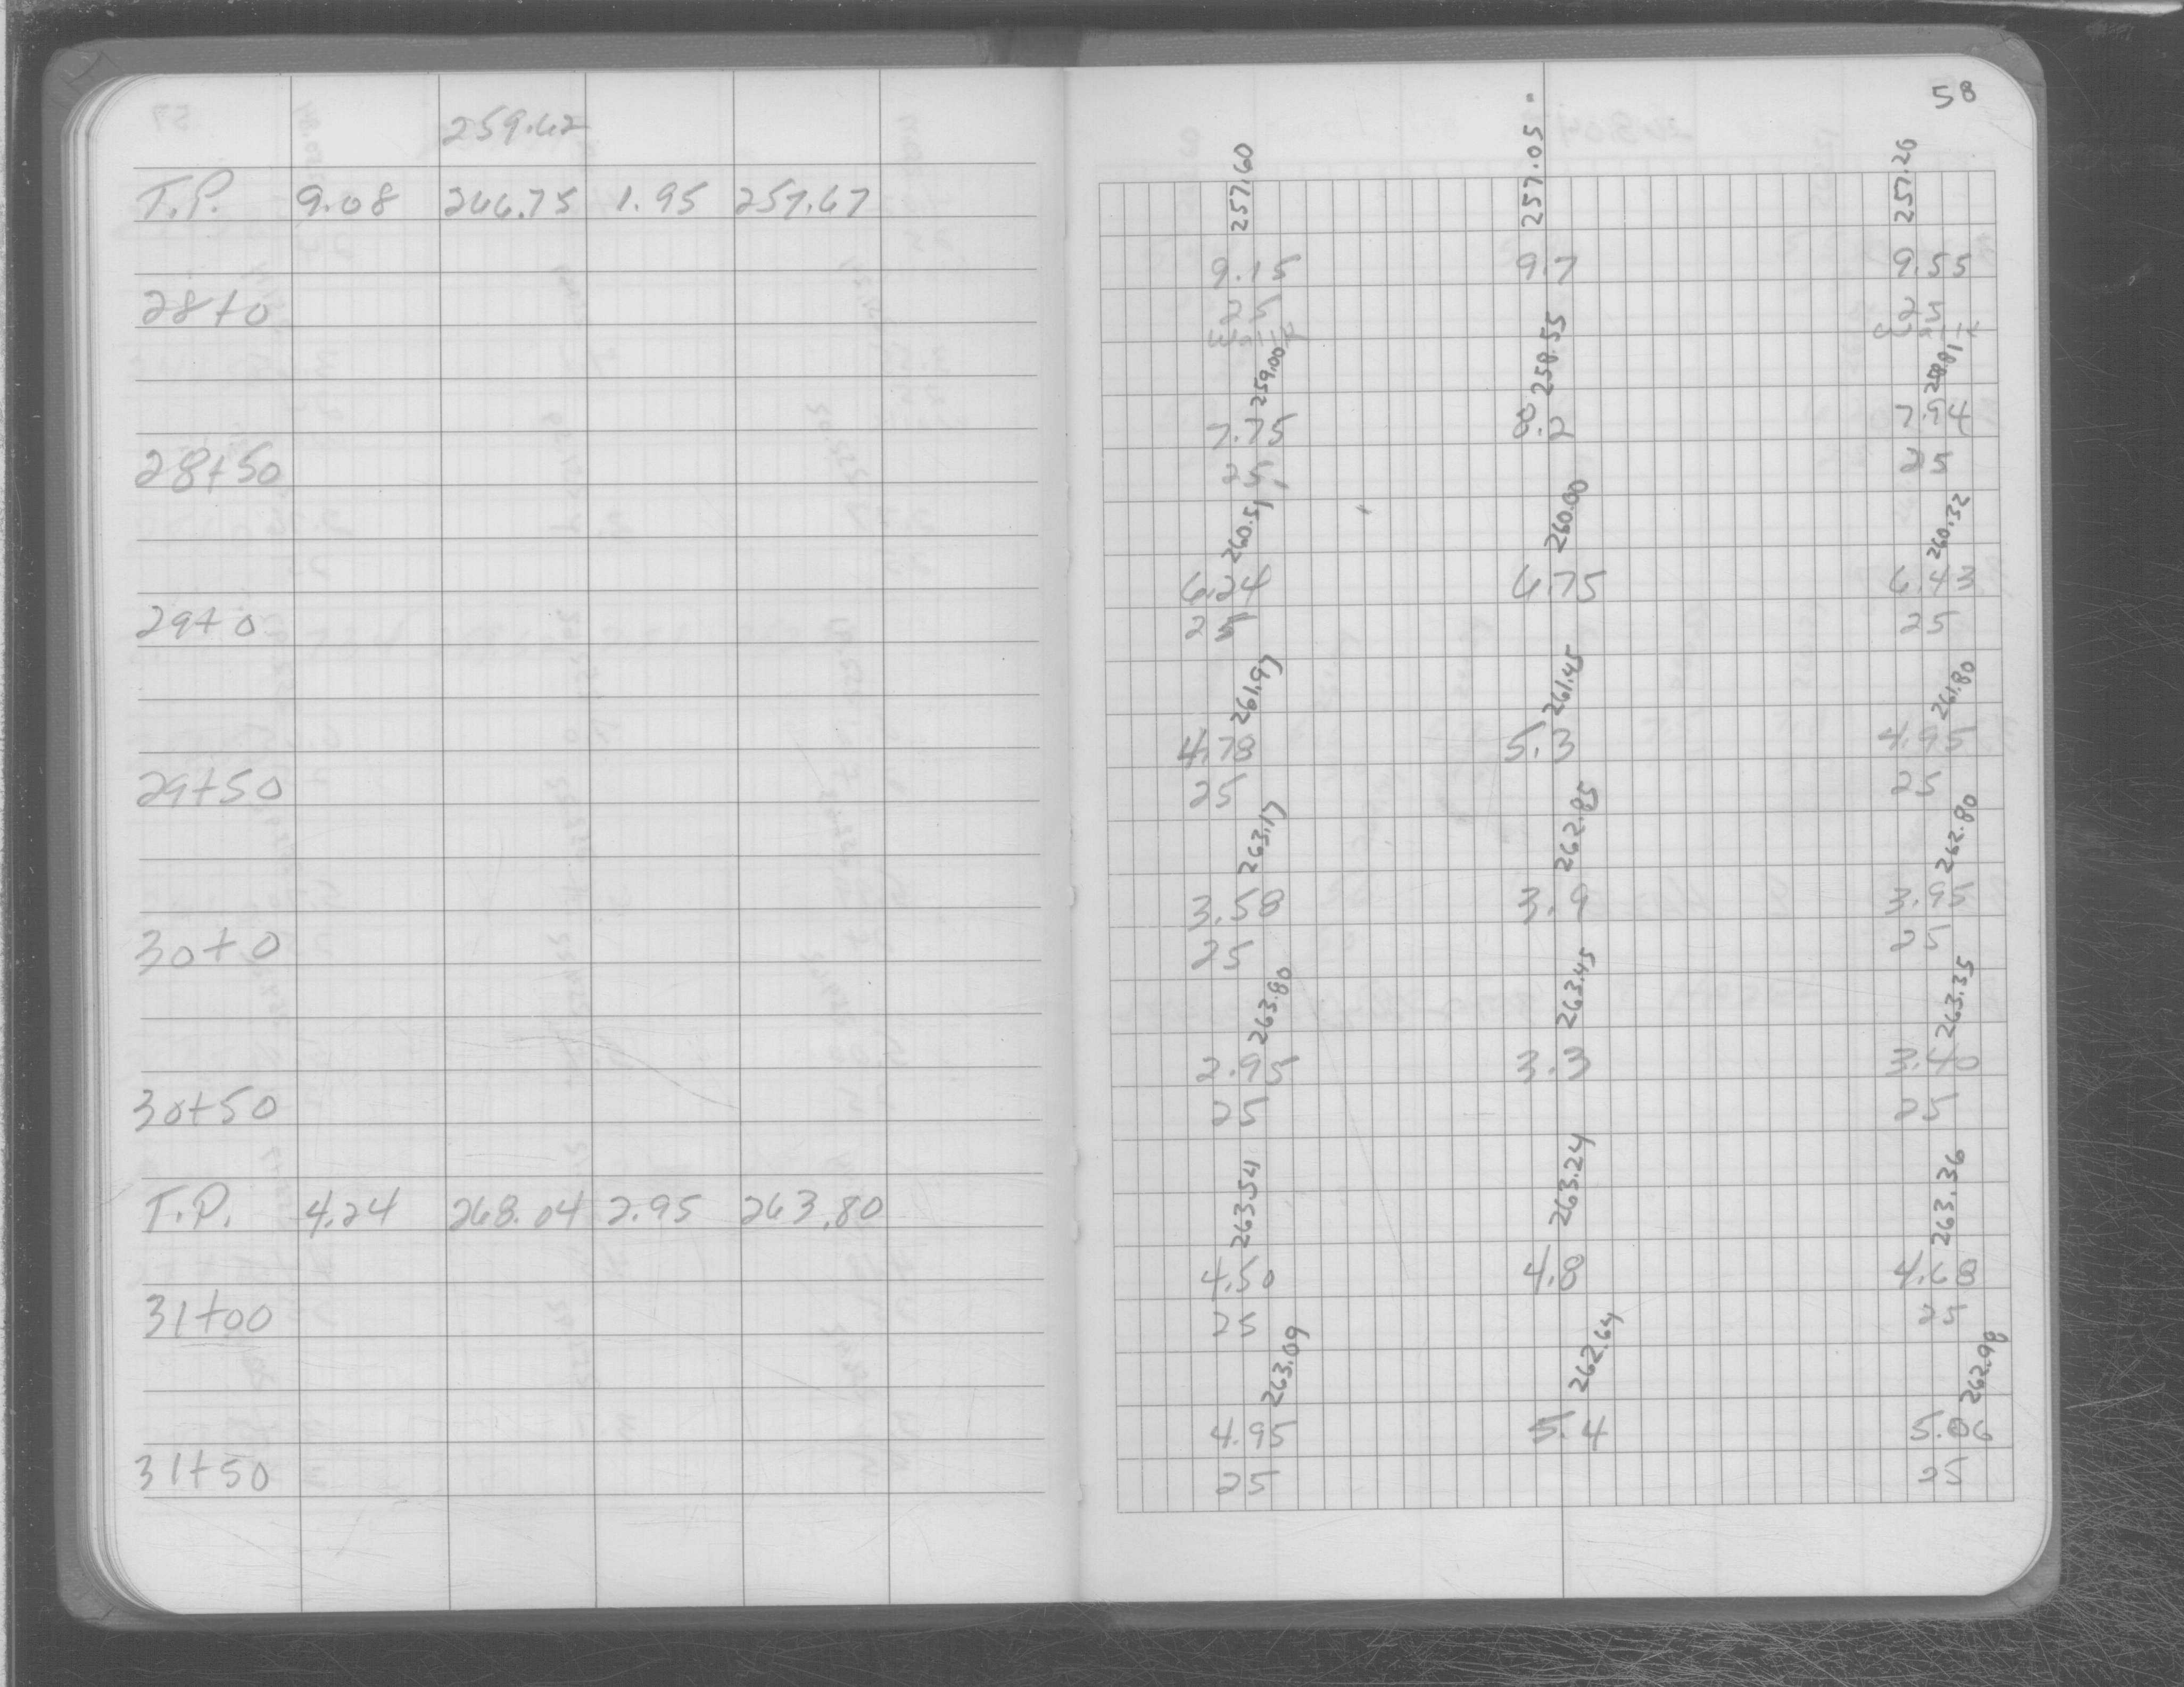 259.62
T.P. 9.08 266.75 1.95 257.67
28+0
28+50
29+0
29+50
30+0
30+50
T.P. 4.24 268.04 2.95 263.80
31+00
31+50
58
257.60 257.05 257.20
9.15 9.7 9.55
25 25
259.00 258.55 258.81
7.75 8.2 7.94
25 25
260.51 260.00 260.32
6.24 6.75 6.43
25 25
261.97 261.45 261.80
4.78 5.3 4.95
25 25
263.17 262.85 262.80
3.58 3.9 3.95
25 25
263.80 263.45 263.35
2.95 3.3 3.40
25 25
263.54 263.24 263.36
4.50 4.8 4.68
25 25
263.09 262.64 262.98
4.95 5.4 5.06
25 25